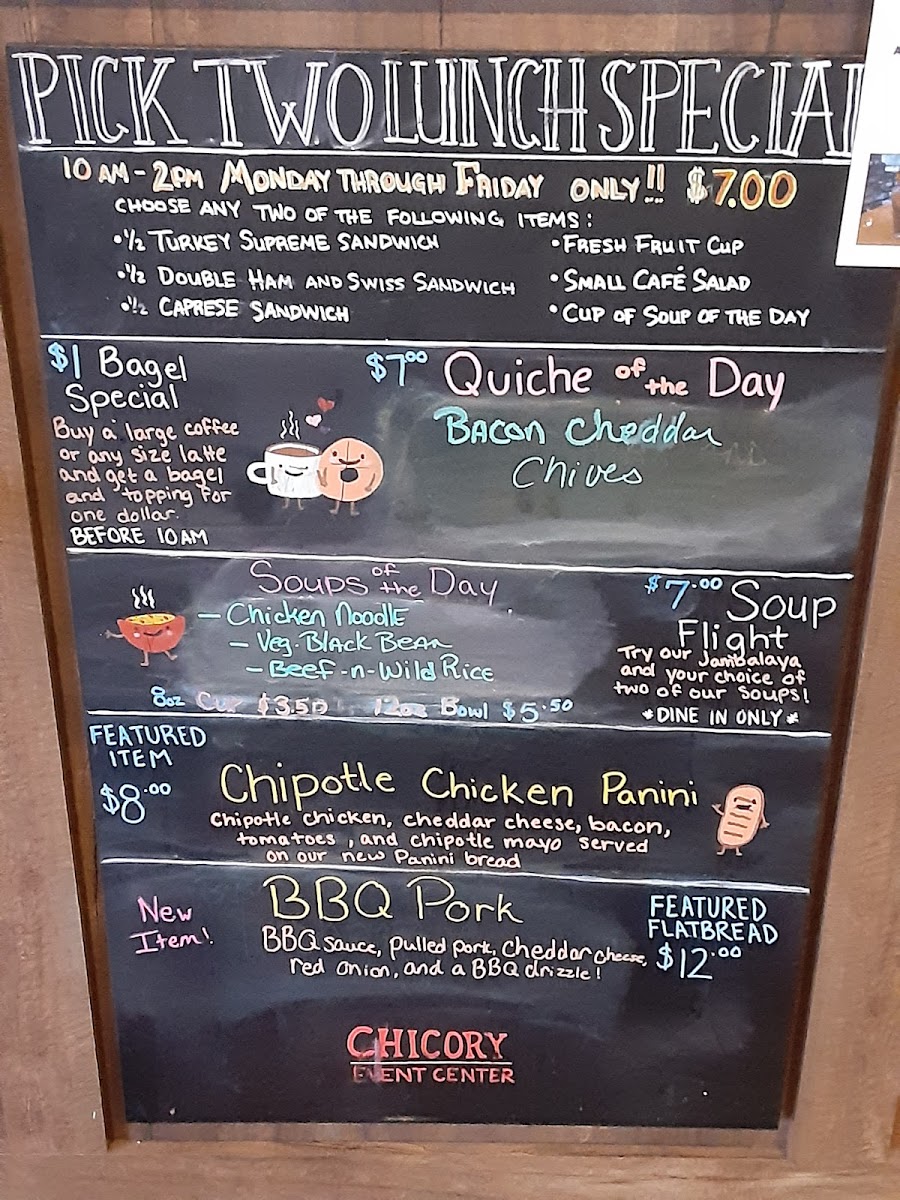 PICK TWO LUNCH SPECIAL
10 AM - 2PM MONDAY THROUGH FRIDAY ONLY!! $7.00
CHOOSE ANY TWO OF THE FOLLOWING ITEMS:
• 1/2 TURKEY SUPREME SANDWICH
• 1/2 DOUBLE HAM AND SWISS SANDWICH
• 1/2 CAPRESE SANDWICH
• FRESH FRUIT CUP
• SMALL CAFÉ SALAD
• CUP OF SOUP OF THE DAY
$1 Bagel
Special
Buy a large coffee
or any size latte
and get a bagel
and topping for
one dollar.
BEFORE 10AM
$7.00 Quiche of the Day
BACON Cheddar
Chives
Soups of the Day
- Chicken Noodle
- Veg. Black Bean
- Beef-n-Wild Rice
8oz Cup $3.50 12oz Bowl $5.50
$7.00 Soup
Flight
Try our Jambalaya
and your choice of
two of our soups!
*DINE IN ONLY*
FEATURED
ITEM
$8.00
Chipotle Chicken Panini
Chipotle chicken, cheddar cheese, bacon,
tomatoes, and chipotle mayo served
on our new Panini bread
New
Item!
BBQ Pork
BBQ sauce, pulled pork, cheddar cheese,
red onion, and a BBQ drizzle!
FEATURED
FLATBREAD
$12.00
CHICORY
EVENT CENTER